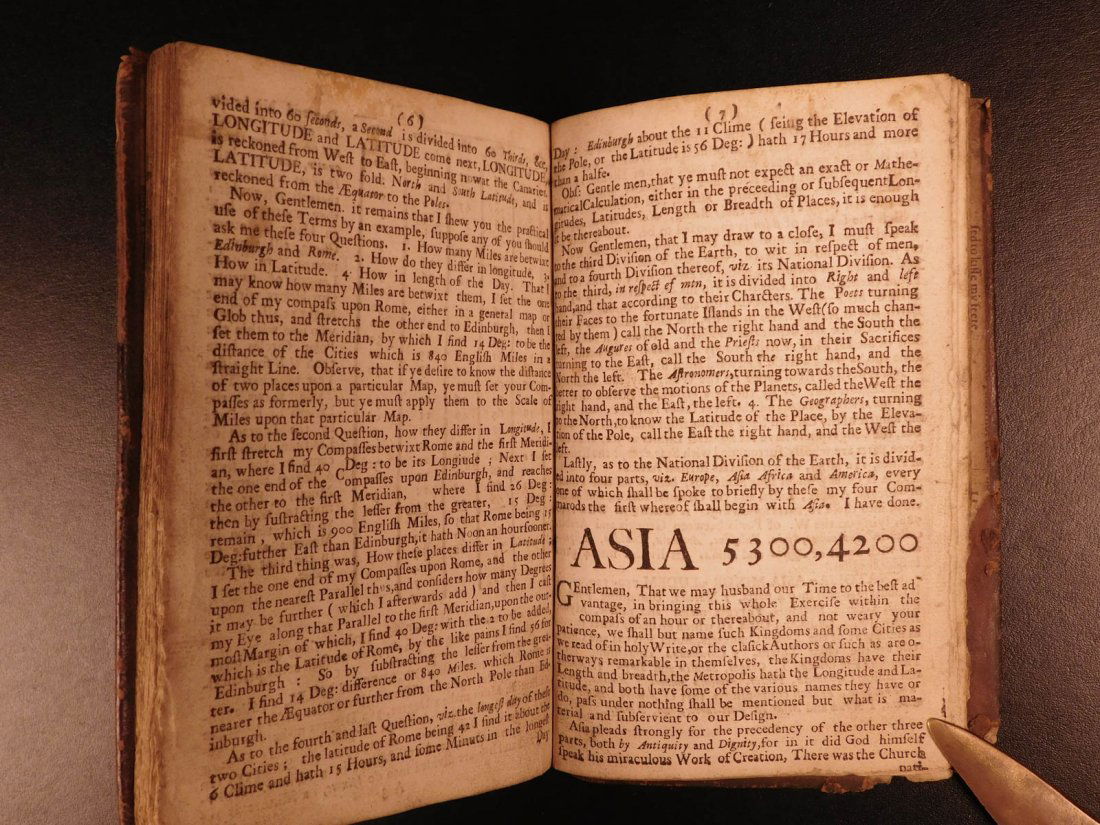 (6)
vided into 60 ſeconds, a Second is divided into 60 Thirds, &c.
LONGITUDE and LATITUDE come next, LONGITUDE,
is reckoned from Weſt to Eaſt, beginning now at the Canaries,
LATITUDE, is two fold: North and South Latitude, and is
reckoned from the Æquator to the Poles.
Now, Gentlemen. it remains that I ſhew you the practical
uſe of theſe Terms by an example, ſuppoſe any of you ſhould
ask me theſe four Queſtions. 1. How many Miles are betwixt
Edinburgh and Rome. 2. How do they differ in longitude, 3.
How in Latitude. 4 How in length of the Day. That I
may know how many Miles are betwixt them, I ſet the one
end of my compaſs upon Rome, either in a general map or
Glob thus, and ſtretchs the other end to Edinburgh, then I
ſet them to the Meridian, by which I find 14 Deg: to be the
diſtance of the Cities which is 840 Engliſh Miles in a
ſtraight Line. Obſerve, that if ye deſire to know the diſtance
of two places upon a particular Map, ye muſt ſet your Com-
paſſes as formerly, but ye muſt apply them to the Scale of
Miles upon that particular Map.
As to the ſecond Queſtion, how they differ in Longitude, I
firſt ſtretch my Compaſſes betwixt Rome and the firſt Meridi-
an, where I find 40 Deg: to be its Longiude; Next I ſet
the one end of the Compaſſes upon Edinburgh, and reaches
the other to the firſt Meridian, where I find 26 Deg:
then by ſuſtracting the leſſer from the greater, 15 Deg:
remain, which is 900 Engliſh Miles, ſo that Rome being 15
Deg: futther Eaſt than Edinburgh, it hath Noon an hour ſooner.
The third thing was, How theſe places differ in Latitude;
I ſet the one end of my Compaſſes upon Rome, and the other
upon the neareſt Parallel thus, and conſiders how many Degrees
it may be further (which I afterwards add) and then I caſt
my Eye along that Parallel to the firſt Meridian, upon the out-
moſt Margin of which, I find 40 Deg: with the 2 to be added,
which is the Latitude of Rome, by the like pains I find 56 for
Edinburgh: So by ſubſtracting the leſſer from the grea-
ter. I find 14 Deg: difference or 840 Miles. which Rome is
nearer the Æquator or further from the North Pole than Ed-
inburgh.
As to the fourth and laſt Queſtion, viz. the longeſt day of theſe
two Cities; the latitude of Rome being 42 I find it about the
6 Clime and hath 15 Hours, and ſome Minuts in the longeſt
Day
(7)
Day: Edinburgh about the 11 Clime (ſeing the Elevation of
the Pole, or the Latitude is 56 Deg:) hath 17 Hours and more
than a halfe.
Obſ: Gentle men, that ye muſt not expect an exact or Mathe-
maticalCalculation, either in the preceeding or ſubſequentLon-
gitudes, Latitudes, Length or Breadth of Places, it is enough
it be thereabout.
Now Gentlemen, that I may draw to a cloſe, I muſt ſpeak
to the third Diviſion of the Earth, to wit in reſpect of men,
and to a fourth Diviſion thereof, viz its National Diviſion. As
to the third, in reſpect of men, it is divided into Right and left
hand,and that according to their Charcters. The Poets turning
their Faces to the fortunate Iſlands in the Weſt(ſo much chan-
ted by them) call the North the right hand and the South the
left, the Augures of old and the Prieſts now, in their Sacrifices
turning to the Eaſt, call the South the right hand, and the
North the left. The Aſtronomers,turning towards theSouth, the
better to obſerve the motions of the Planets, called theWeſt the
right hand, and the Eaſt, the left. 4. The Geographers, turning
to the North,to know the Latitude of the Place, by the Eleva-
tion of the Pole, call the Eaſt the right hand, and the Weſt the
left.
Laſtly, as to the National Diviſion of the Earth, it is divid-
ed into four parts, viz. Europe, Aſia Africa and America, every
one of which ſhall be ſpoke to briefly by theſe my four Com-
marods the firſt whereof ſhall begin with Aſia. I have done.
ASIA 5300,4200
GEntlemen, That we may husband our Time to the beſt ad
vantage, in bringing this whole Exerciſe within the
compaſs of an hour or thereabout, and not weary your
patience, we ſhall but name ſuch Kingdoms and ſome Cities as
we read of in holyWrite,or the claſickAuthors or ſuch as are o-
therways remarkable in themſelves, the Kingdoms have their
Length and breadth, the Metropolis hath the Longitude and La-
titude, and both have ſome of the various names they have or
do, paſs under nothing ſhall be mentioned but what is ma-
terial and ſubſervient to our Deſign.
Aſia pleads ſtrongly for the precedency of the other three
parts, both by Antiquity and Dignity,for in it did God himſelf
ſpeak his miraculous Work of Creation, There was the Church
nati-